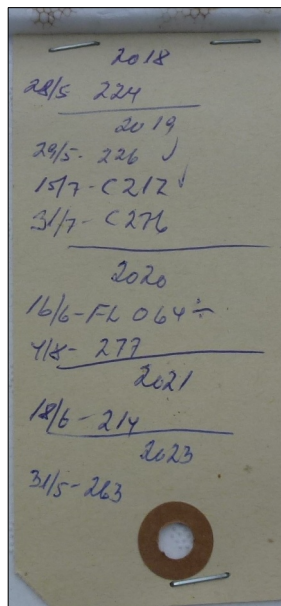 2018
28/5 224
2019
29/5- 226
15/7- C212
31/7- C276
2020
16/6-FL 064 ÷
4/8- 277
2021
18/6-214
2023
31/5-263